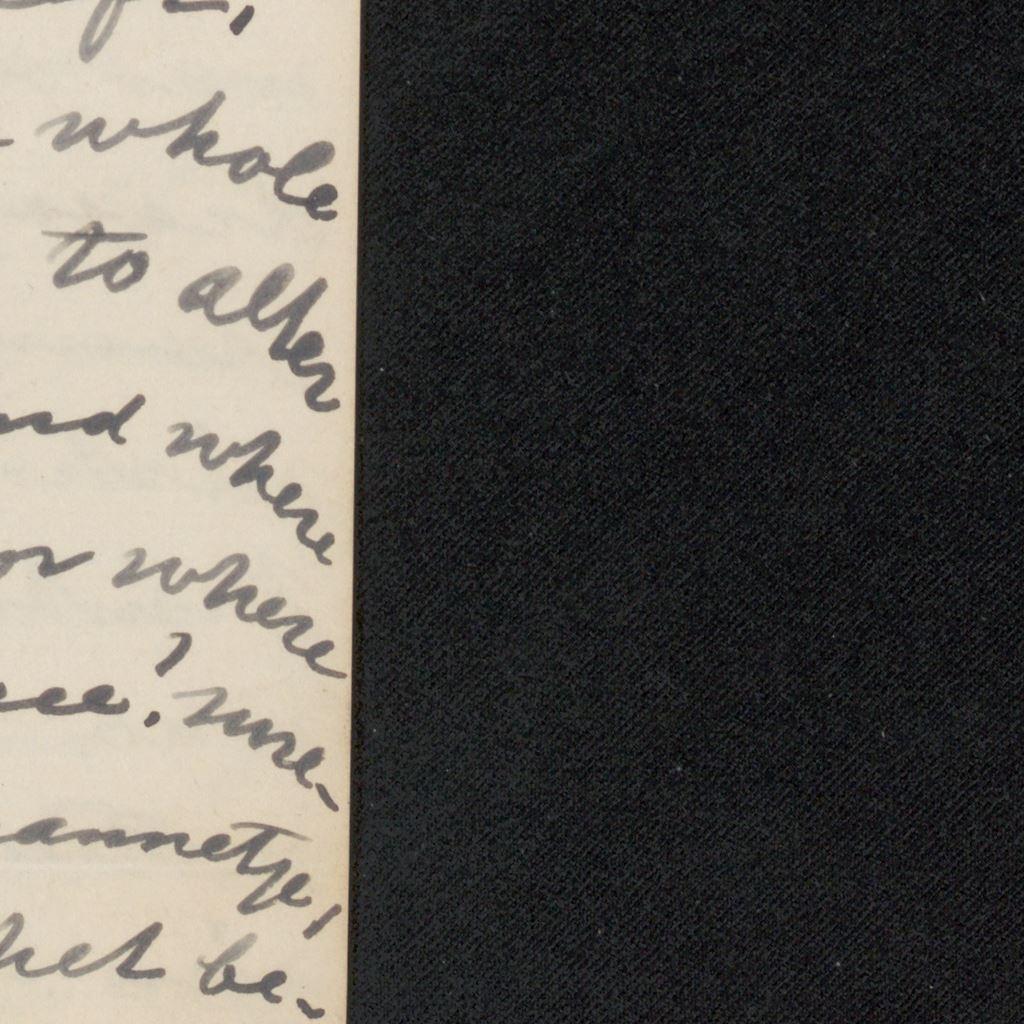 whole
to alter
nd where
or where
ee? nure-
annetje,
het be-